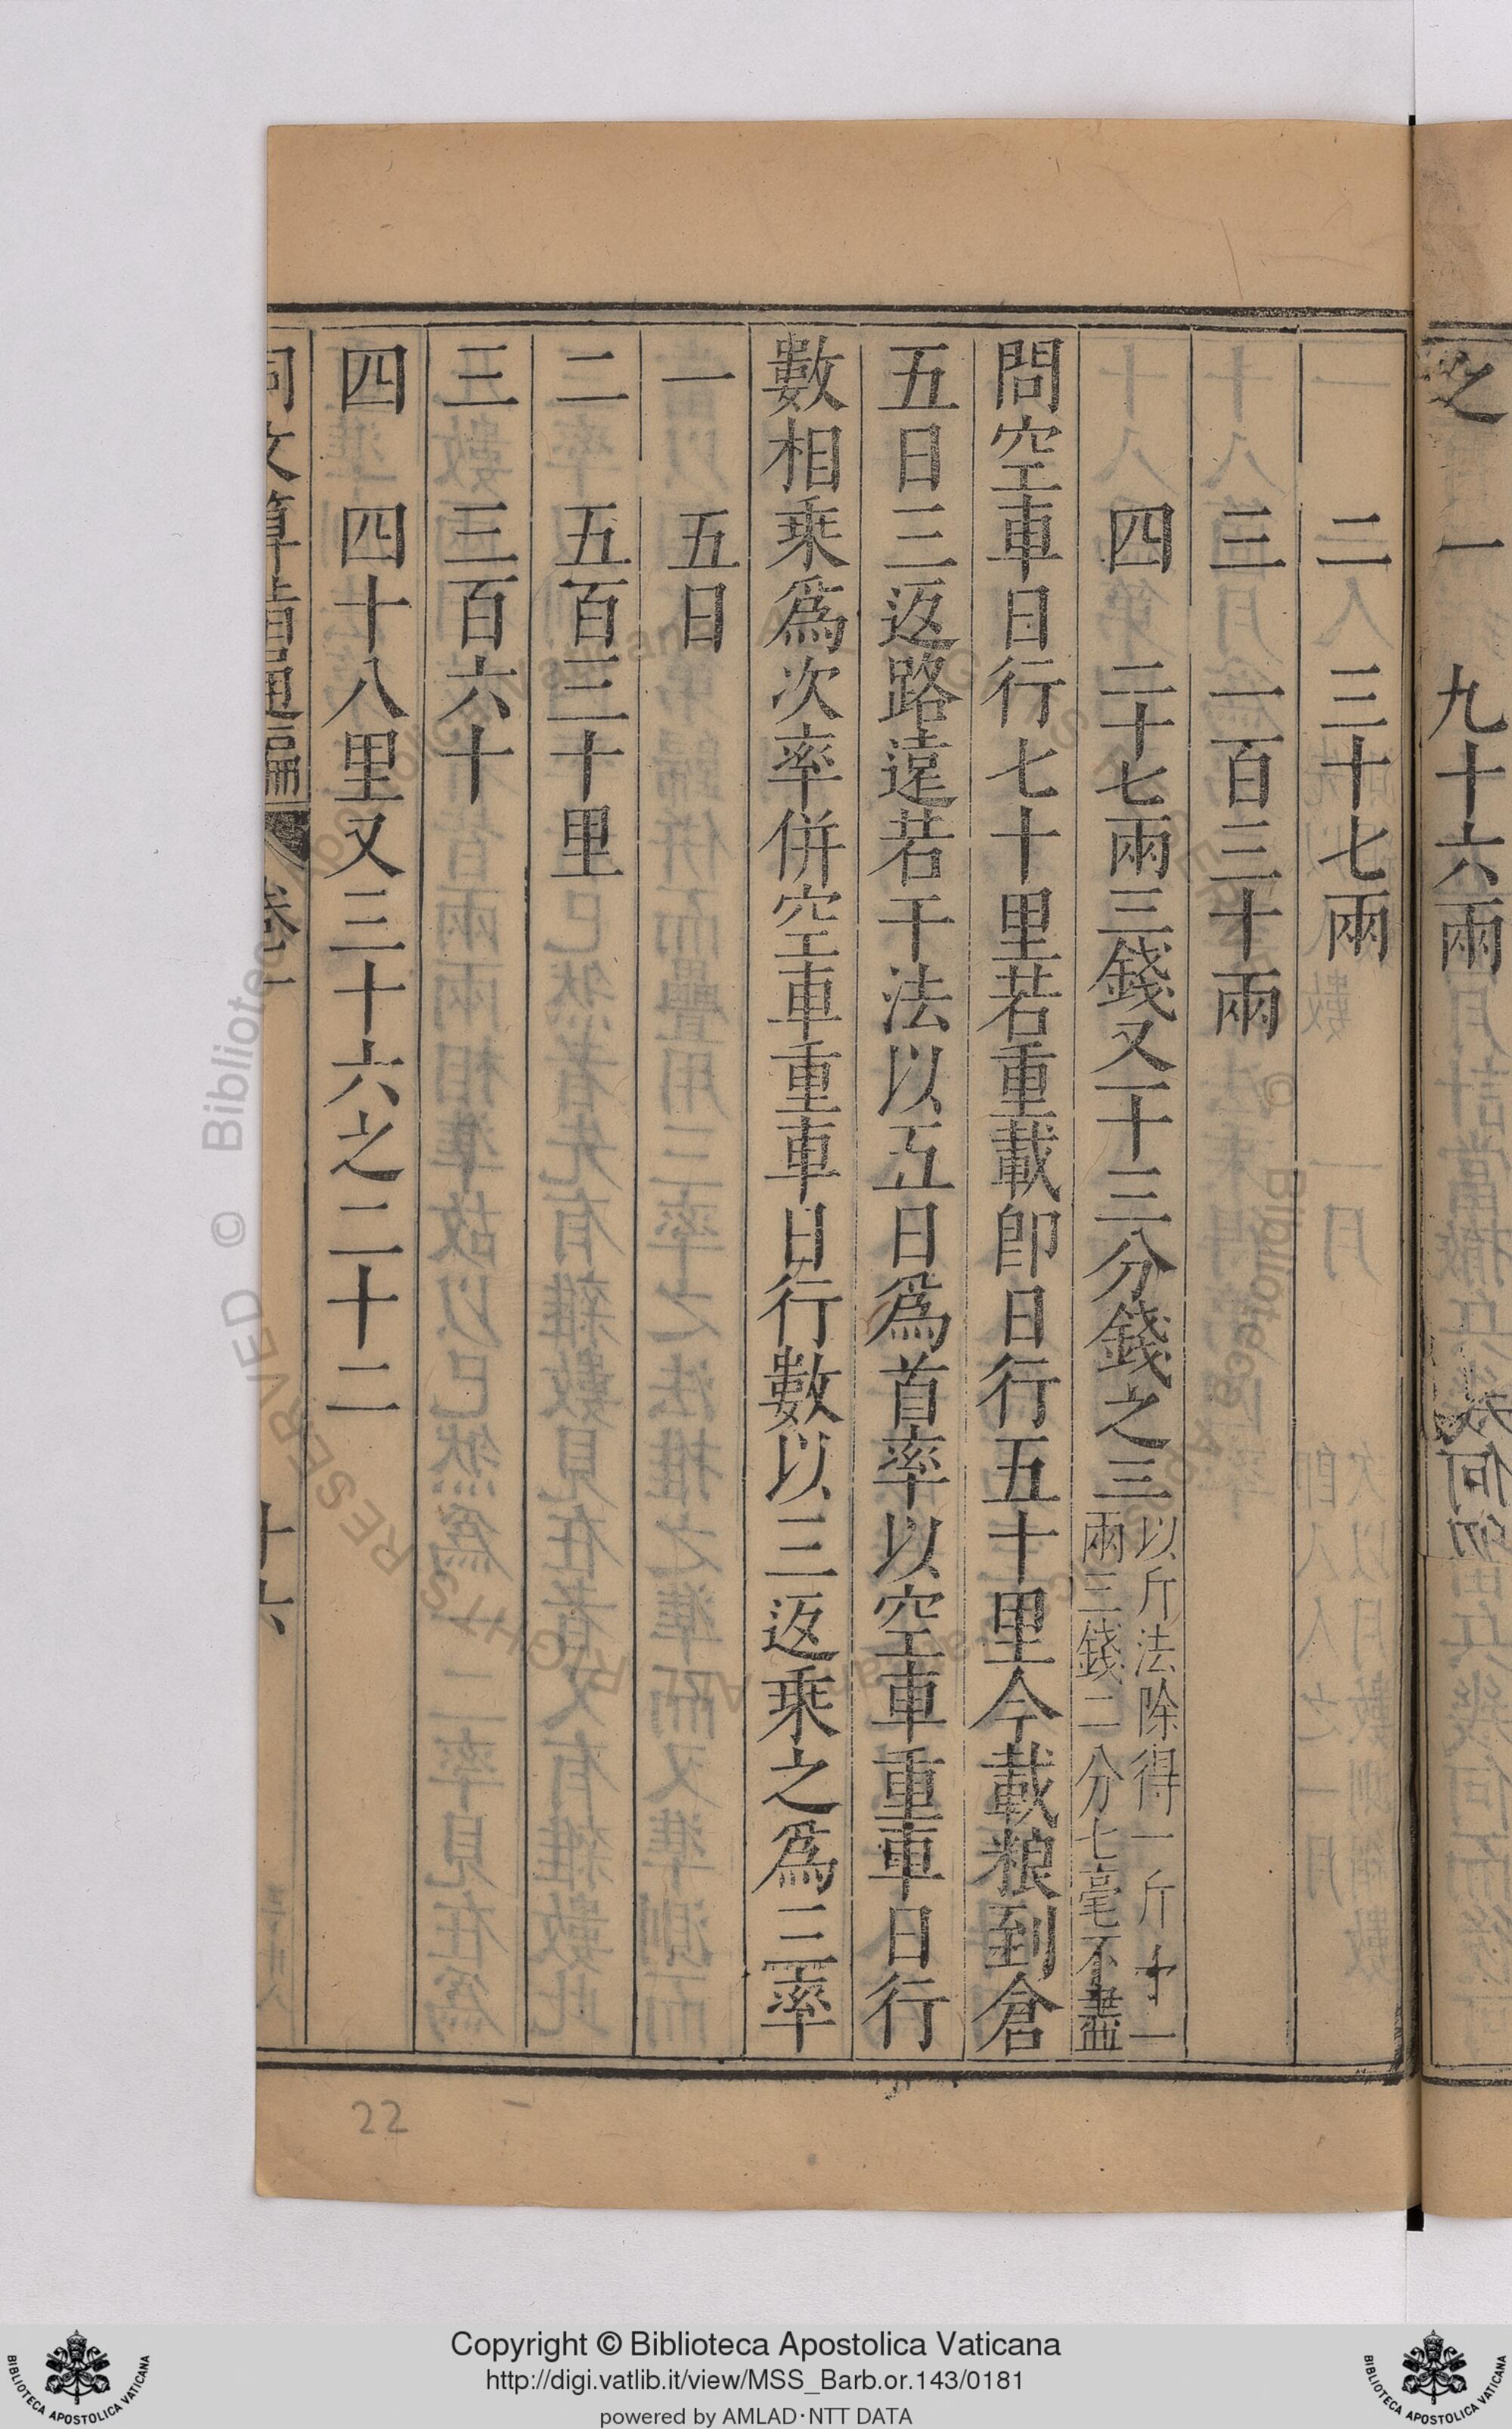 之 一 九十六兩
二 三十七兩
三 一百三十兩
四 二十七兩三錢又十三分錢之三 以斤法除得一斤十一
兩三錢二分七毫不盡
問空車日行七十里若重載即日行五十里今載粮到倉
五日三返路遠若干法以五日爲首率以空車重車日行
數相乘爲次率併空車重車日行數以三返乘之爲三率
一 五日
二 五百三十里
三 三百六十
四 四十八里又三十六之二十二
同文算指通編 卷一 十六
22
Copyright © Biblioteca Apostolica Vaticana
http://digi.vatlib.it/view/MSS_Barb.or.143/0181
powered by AMLAD·NTT DATA
BIBLIOTECA APOSTOLICA VATICANA
BIBLIOTECA APOSTOLICA VATICANA